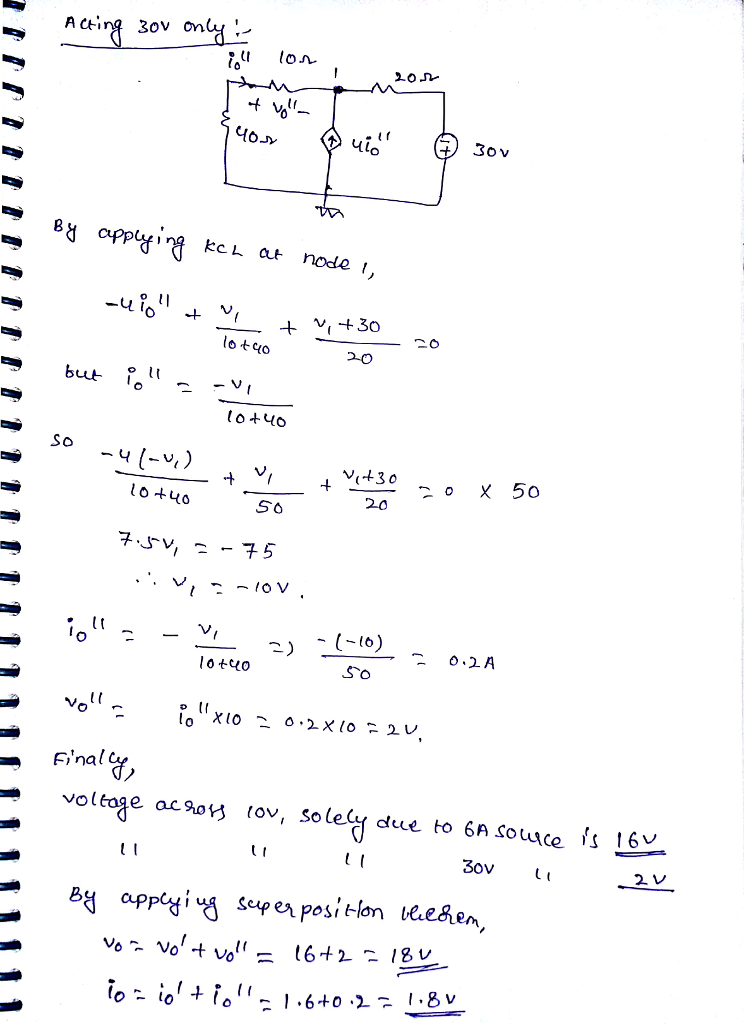 Acting 30V only :-
io'' 10Ω 1 20Ω
+ vo'' -
40Ω 4io'' - + 30V
By applying KCL at node 1,
-4io'' + V1/(10+40) + (V1+30)/20 = 0
but io'' = -V1/(10+40)
so -4(-V1)/(10+40) + V1/50 + (V1+30)/20 = 0 × 50
7.5V1 = -75
∴ V1 = -10V.
io'' = - V1/(10+40) => -(-10)/50 = 0.2A
vo'' = io'' x10 = 0.2x10 = 2V.
Finally,
voltage across 10V, solely due to 6A source is 16V
'' '' '' 30V '' 2V
By applying superposition theorem,
vo = vo' + vo'' = 16+2 = 18V
io = io' + io'' = 1.6+0.2 = 1.8V